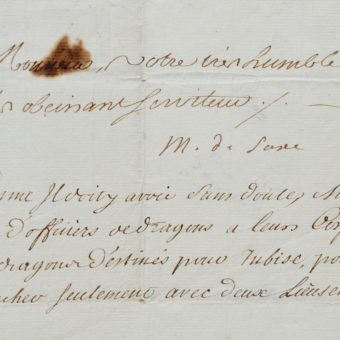 Monsieur, Votre tres humble
obeissant serviteur ./.
M. de Saxe
avoir sans doute,
d'officiers de dragons a leurs
dragons destinés pour Tubise,
seulement avec deux